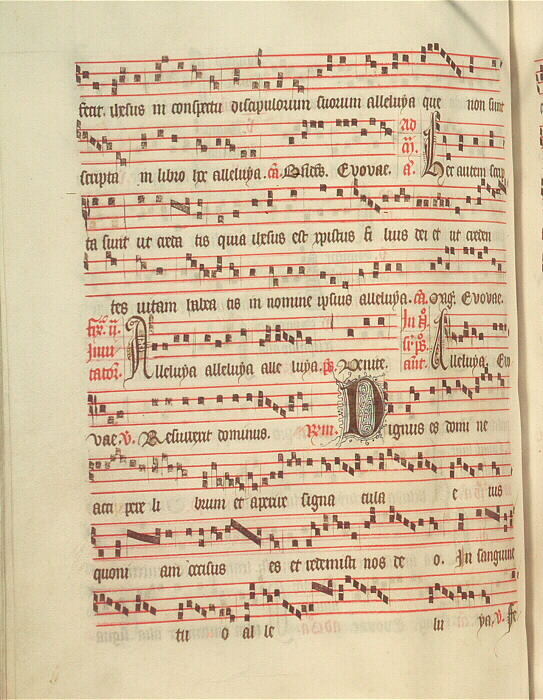 fecit ihesus in conspectu discipulorum suorum alleluya que non sunt
scripta in libro hoc alleluya. Evovae. Ad Hec autem scrip
ta sunt ut creda tis quia ihesus est xpistus fi lius dei et ut creden
tes vitam habea tis in nomine ipsius alleluya. Evovae.
Alleluya alleluya alle luya. ps. Venite. Alleluya. Evo
vae. v. Resurrexit dominus. Dignus es domi ne
acci pere li brum et aperire signa cula e ius
quoni am occisus es et redemisti nos de o. In sanguine
tu o al le lu ya. v.